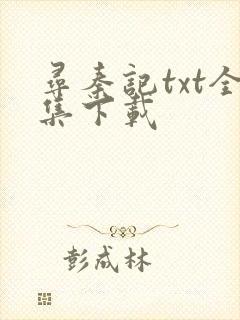 尋秦記txt全
集下載
彭成林